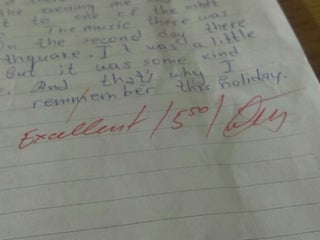 the evening me
to one of the most
The music there was
On the second day there
thquake. It was a little
But it was some kind
And that's why I
remmember this holiday.
Excellent /5⁵⁰/